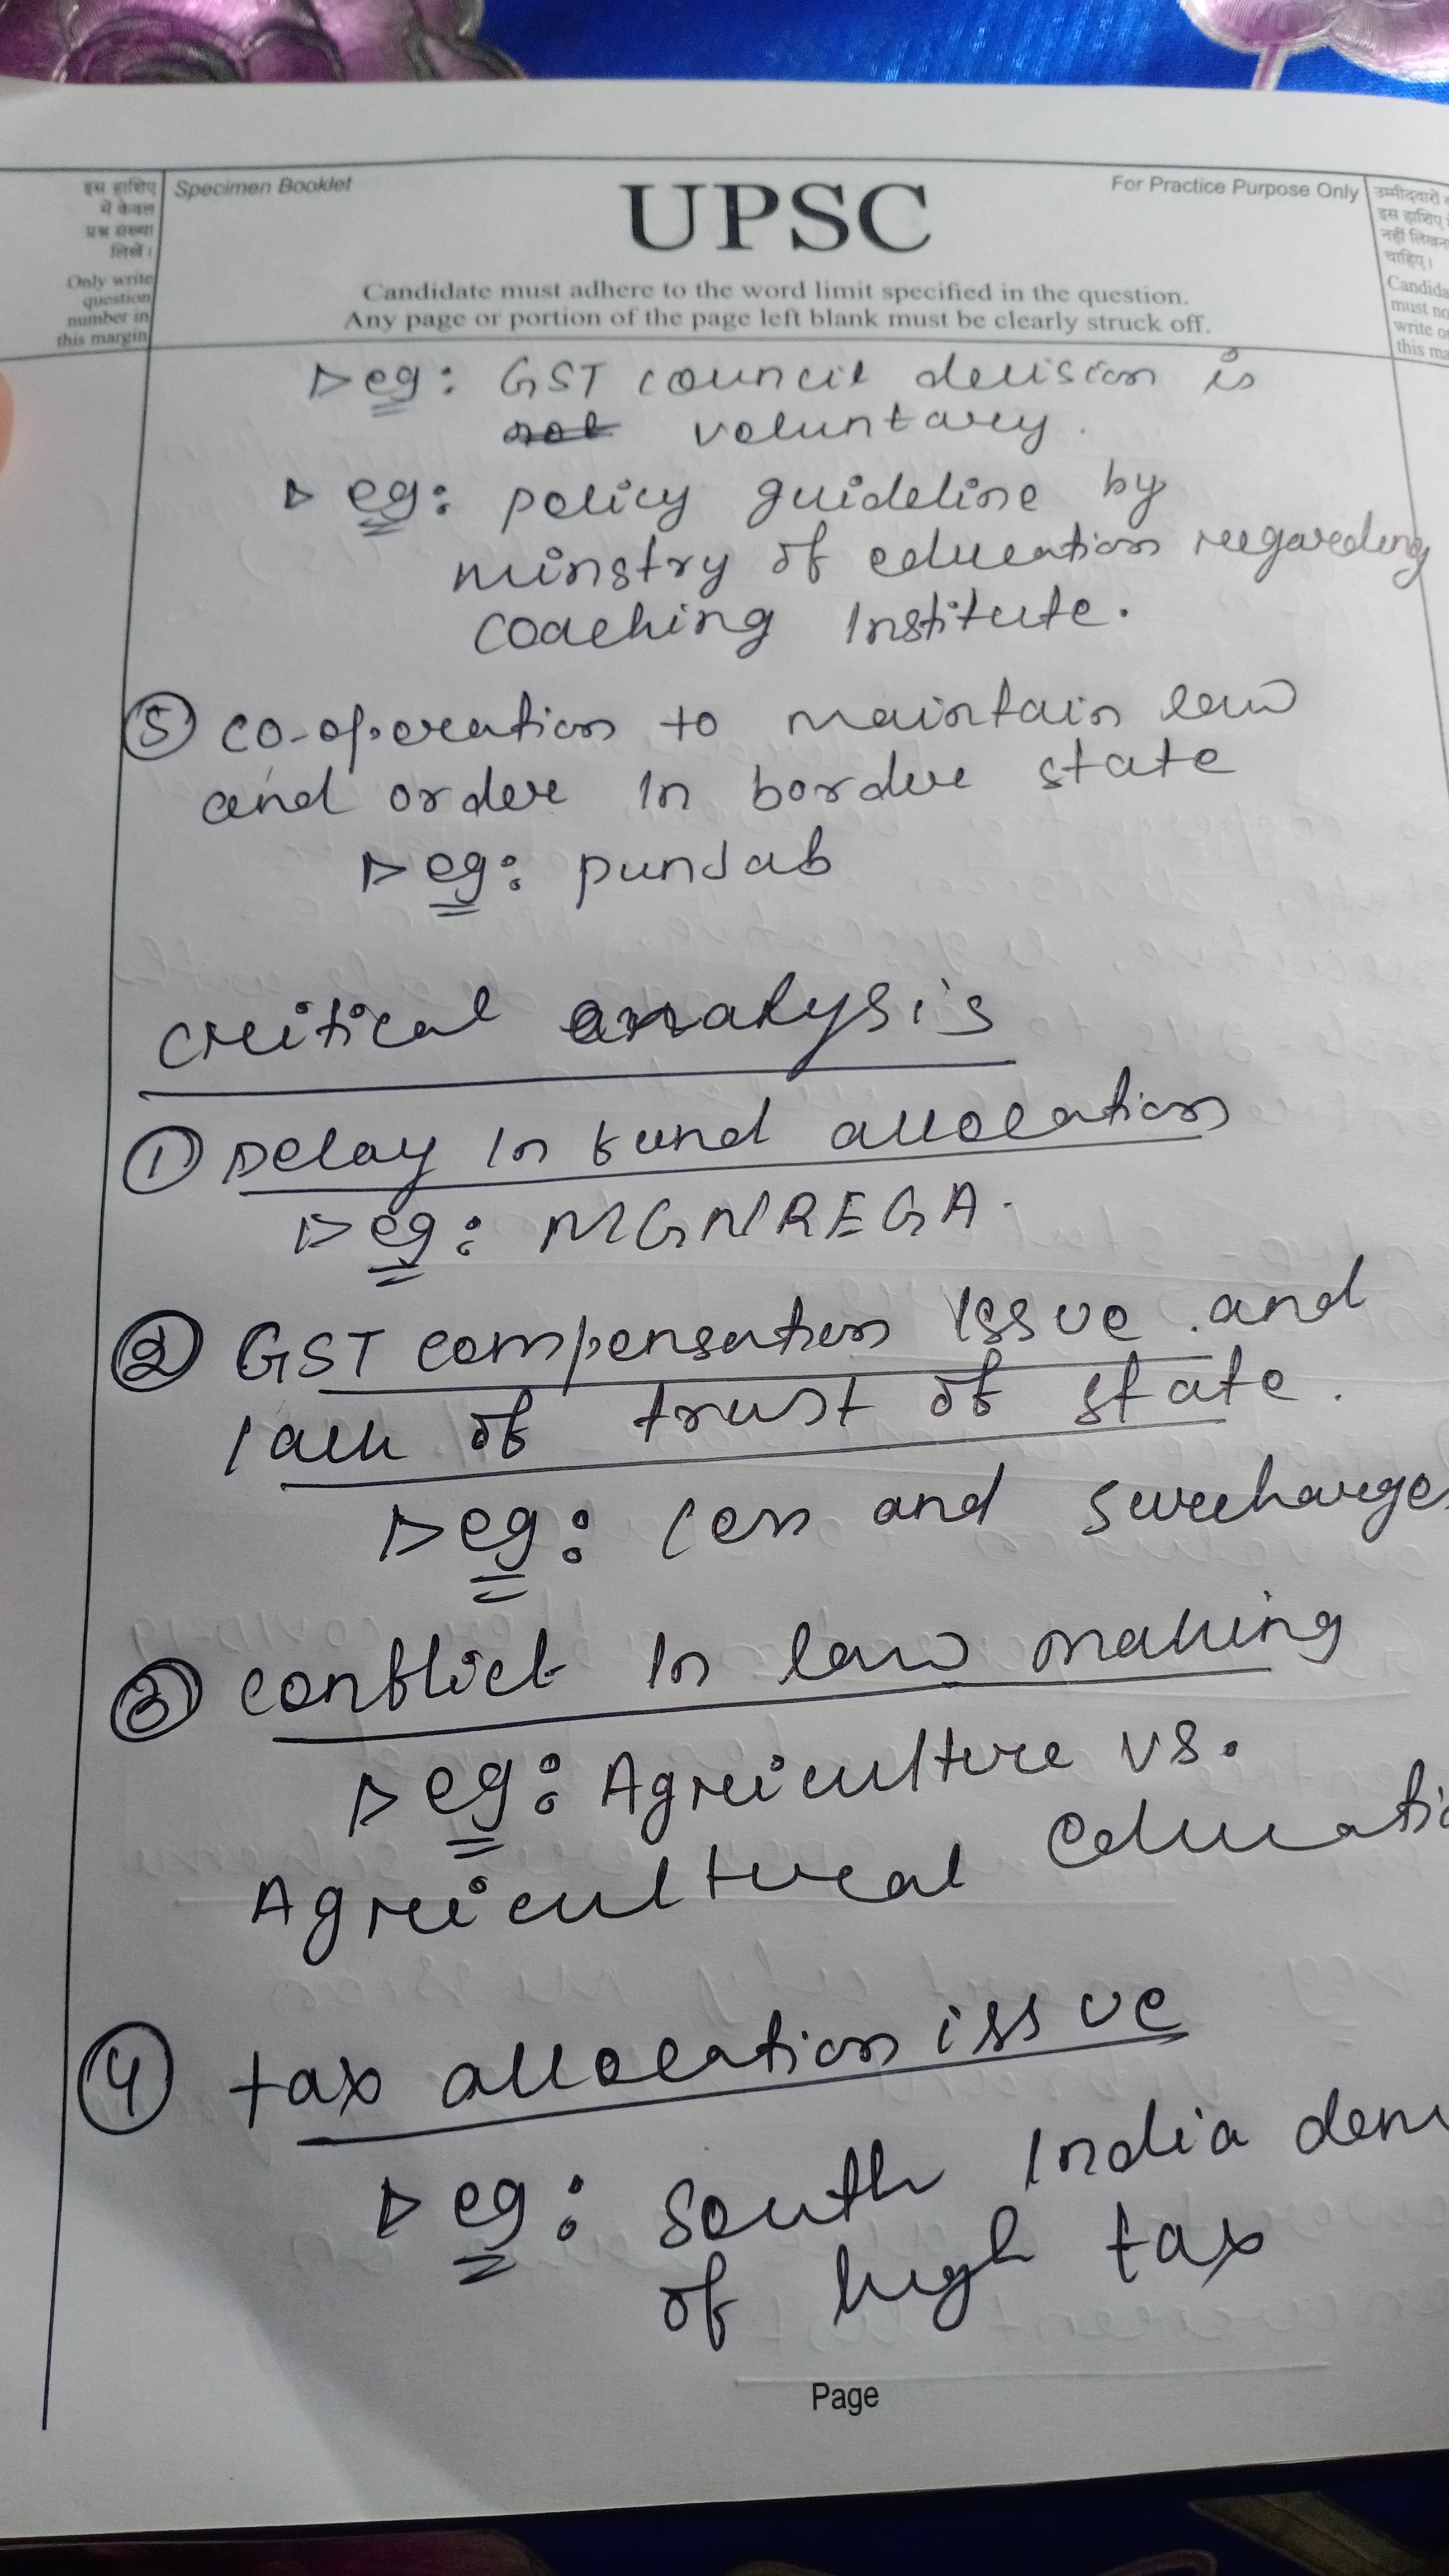 इस हाशिए
में केवल
प्रश्न संख्या
लिखें।
Only write
question
number in
this margin
Specimen Booklet
UPSC
For Practice Purpose Only
Candidate must adhere to the word limit specified in the question.
Any page or portion of the page left blank must be clearly struck off.
उम्मीदवारों
इस हाशिए
नहीं लिखना
चाहिए।
Candida
must no
write o
this ma
eg: GST council decision is
not voluntary.
eg: policy guideline by
minstry of education regarding
coaching Institute.
5 co-operation to maintain law
and order in border state
eg: punjab
critical analysis
1 Delay in fund allocation
eg: MGNREGA.
2 GST compensation issue and
lack of trust of state.
eg: cess and surcharges
3 conflict in law making
eg: Agriculture vs.
Agricultural educati
4 tax allocation issue
eg: South India dem
of high tax
Page